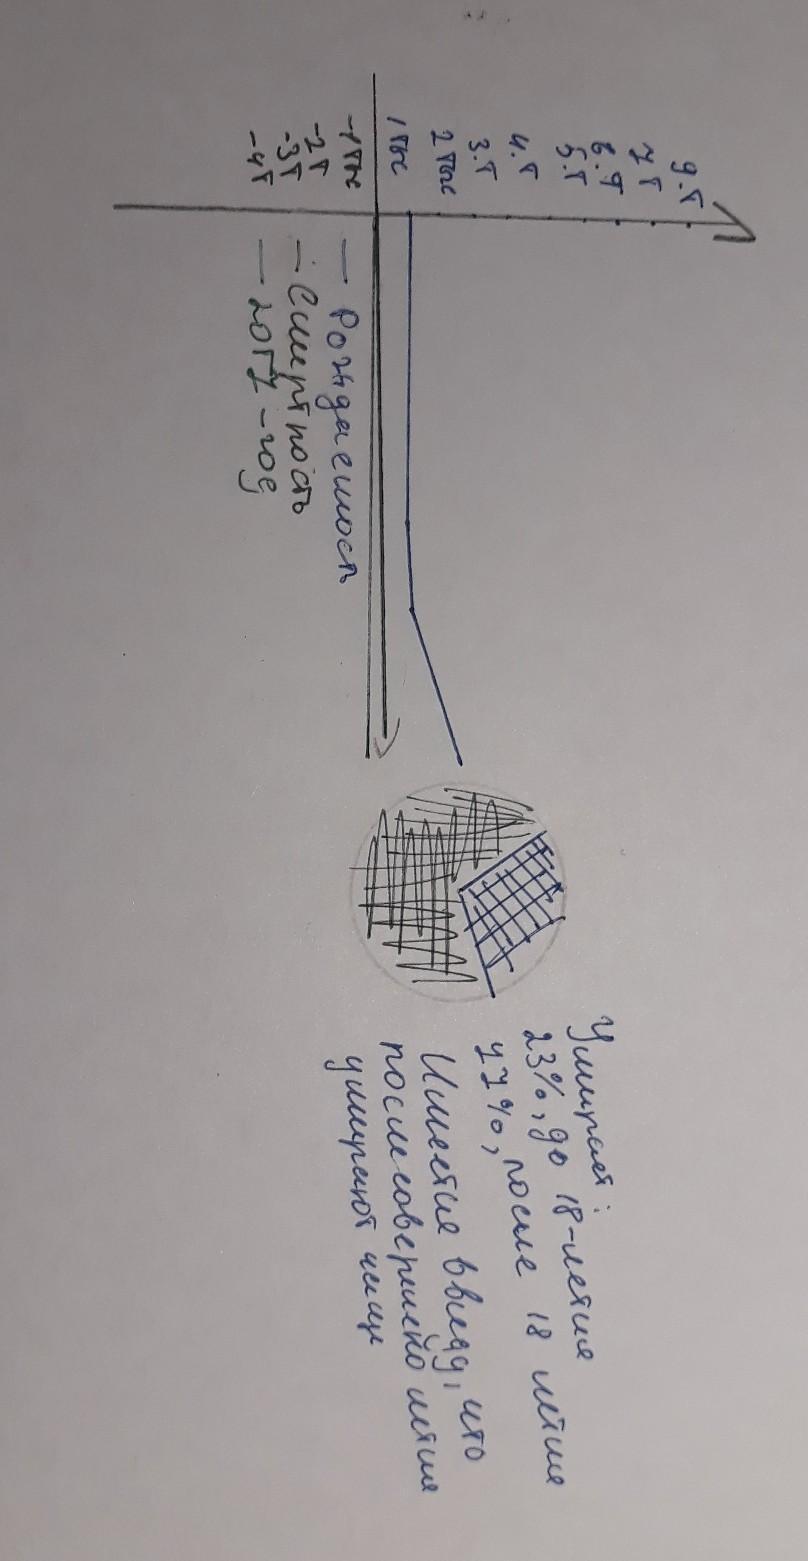 9.т
7 т
6.т
5.т
4.т
3.т
2 тыс
1 тыс
-1 тыс
-2т
-3т
-4т
— Рождаемость
— Смертность
Умирает:
23%, до 18-летия
77%, после 18 летия
Имеется ввиду, что
после совершенолетия
умирают чаще